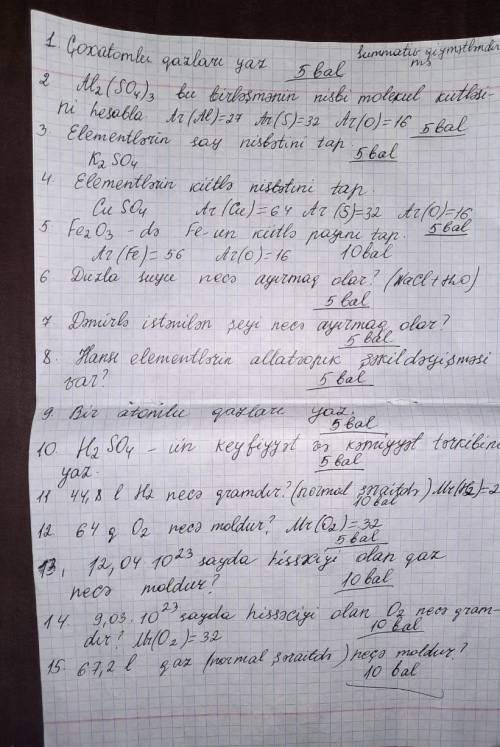 Summativ qiymətləndir
mə
1. Çoxatomlu qazları yaz 5 bal
2 Al₂(SO₄)₃ bu birləşmənin nisbi molekul kütləsi-
ni hesabla Ar(Al)=27 Ar(S)=32 Ar(O)=16 5 bal
3. Elementlərin say nisbətini tap.
K₂SO₄ 5 bal
4. Elementlərin kütlə nisbətini tap.
CuSO₄ Ar(Cu)=64 Ar(S)=32 Ar(O)=16
5 bal
5 Fe₂O₃ - də Fe-un kütlə payını tap.
Ar(Fe)=56 Ar(O)=16 10 bal
6 Duzla suyu necə ayırmaq olar? (NaCl+H₂O)
5 bal
7 Dəmirlə istənilən şeyi necə ayırmaq olar?
5 bal
8. Hansı elementlərin allatropik şəkildəyişməsi
var? 5 bal
9. Bir atomlu qazları yaz.
5 bal
10. H₂SO₄ - ün keyfiyyət və kəmiyyət tərkibini
yaz. 5 bal
11 44,8 l H₂ necə qramdır? (normal şəraitdə) Mr(H₂)=2
10 bal
12. 64 q O₂ necə moldur? Mr(O₂)=32
5 bal
13. 12,04·10²³ sayda hissəciyi olan qaz
necə moldur? 10 bal
14. 9,03·10²³ sayda hissəciyi olan O₂ necə qram-
dır? Mr(O₂)=32 10 bal
15. 67,2 l qaz (normal şəraitdə) neçə moldur?
10 bal